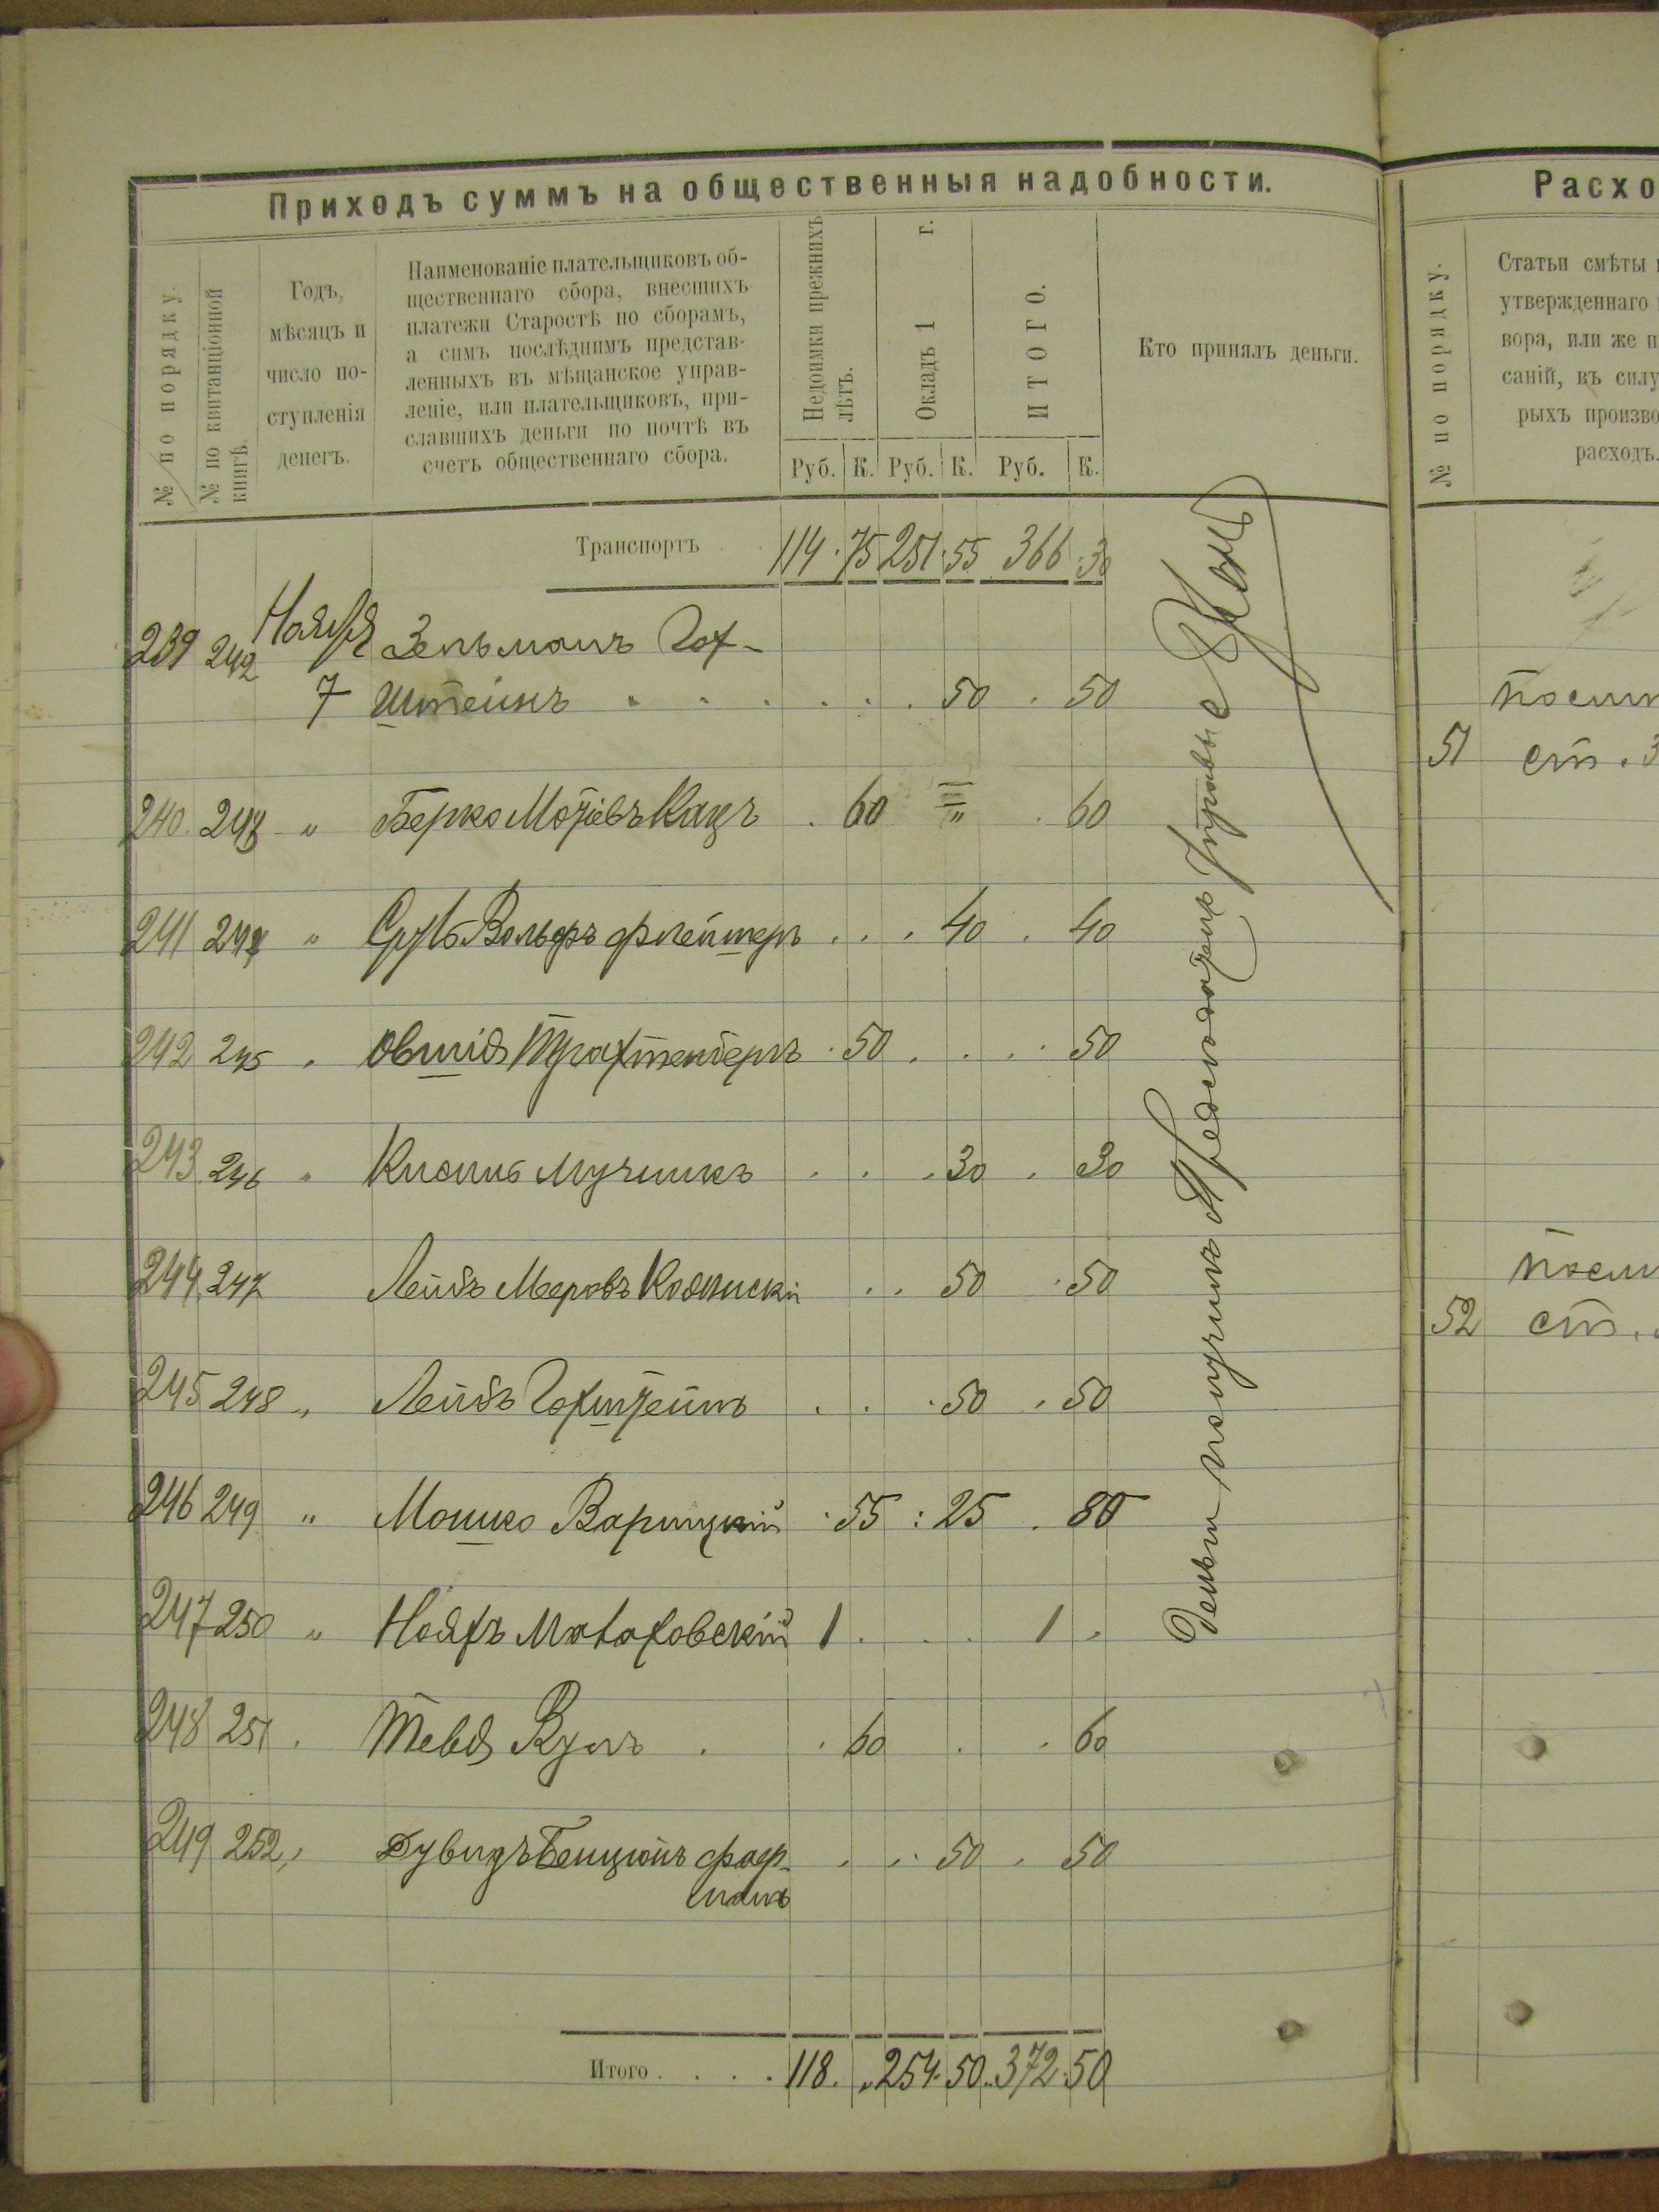 Приходъ суммъ на общественныя надобности.
№ по порядку.
№ по квитанціонной книгѣ.
Годъ,
мѣсяцъ и
число по-
ступленія
денегъ.
Наименованіе плательщиковъ об-
щественнаго сбора, внесшихъ
платежи Старостѣ по сборамъ,
а симъ послѣднимъ представ-
ленныхъ въ мѣщанское управ-
леніе, или плательщиковъ, при-
славшихъ деньги по почтѣ въ
счетъ общественнаго сбора.
Недоимки прежнихъ лѣтъ.
Окладъ 1 г.
ИТОГО.
Кто принялъ деньги.
Руб. К. Руб. К. Руб. К.
Транспортъ 114 . 75 251 . 55 . 366 . 30
239 242 Ноября Зельманъ Гох-
7 Штейнъ . . . . . . 50 . 50
240 243 " Берко Мотіевъ Кацъ . 60 " . 60
241 244 " Сруль Вольфъ Флейшеръ . . . 40 . 40
242 245 " Овшія Трахтенберъ . 50 . . . 50
243 246 " Мучникъ . . . 30 . 30
244 247 Лейбъ Меровъ . . 50 . 50
245 248 " Лейбъ Гохштейнъ . . . 50 . 50
246 249 " Мошко Варницкій . 55 : 25 . 80
247 250 " Малаховскій 1 . . . 1 .
248 251 . Тевья . . 60 . . 60
249 252 " Дувидъ Бенціонъ
. . . 50 . 50
Итого . . . . 118 . . 254 . 50 . 372 . 50
Деньги получилъ Предсѣдатель Управы
Расхо
№ по порядку.
Статьи смѣты
утвержденнаго
вора, или же п
саній, въ силу
рыхъ произво
расходъ.
51 ст. 3
52 ст.